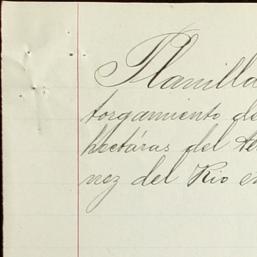 Planilla
torgamiento de
hectáras del te
nez del Rio e